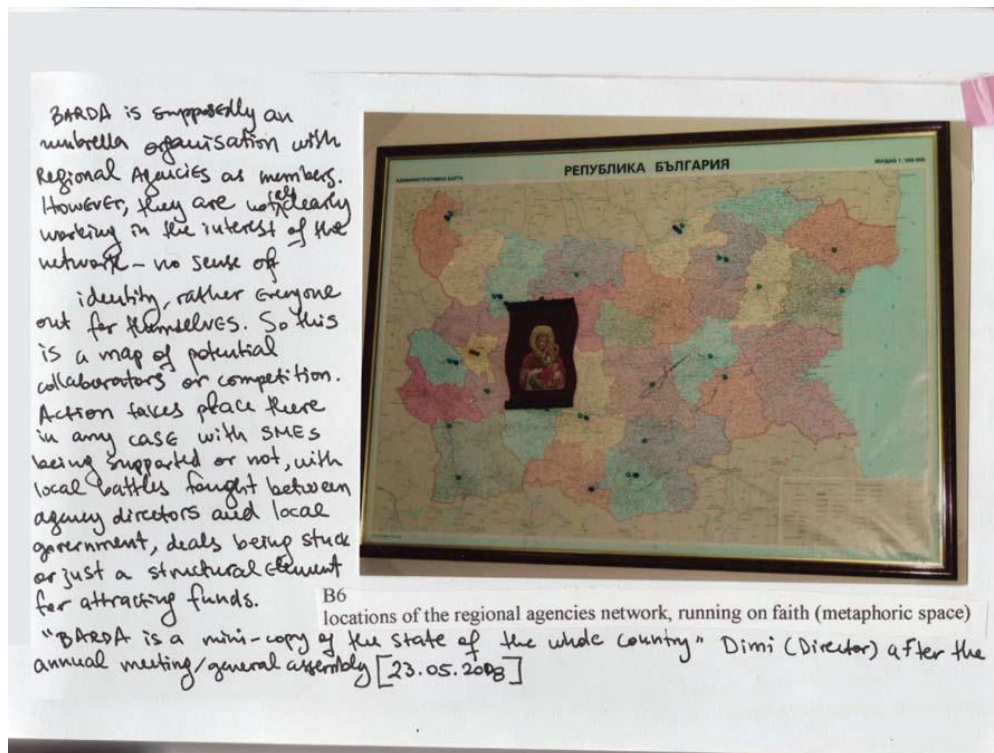 BARDA is supposedly an
umbrella organisation with
Regional Agencies as members.
However, they are not (all) clearly
working in the interest of the
network – no sense of
identity, rather everyone
out for themselves. So this
is a map of potential
collaborators or competition.
Action takes place there
in any case with SMEs
being supported or not, with
local battles fought between
agency directors and local
government, deals being stuck
or just a structural element
for attracting funds.
"BARDA is a mini-copy of the state of the whole country" Dimi (Director) after the
annual meeting/general assembly [23.05.2008]
РЕПУБЛИКА БЪЛГАРИЯ
АДМИНИСТРАТИВНА КАРТА
B6
locations of the regional agencies network, running on faith (metaphoric space)